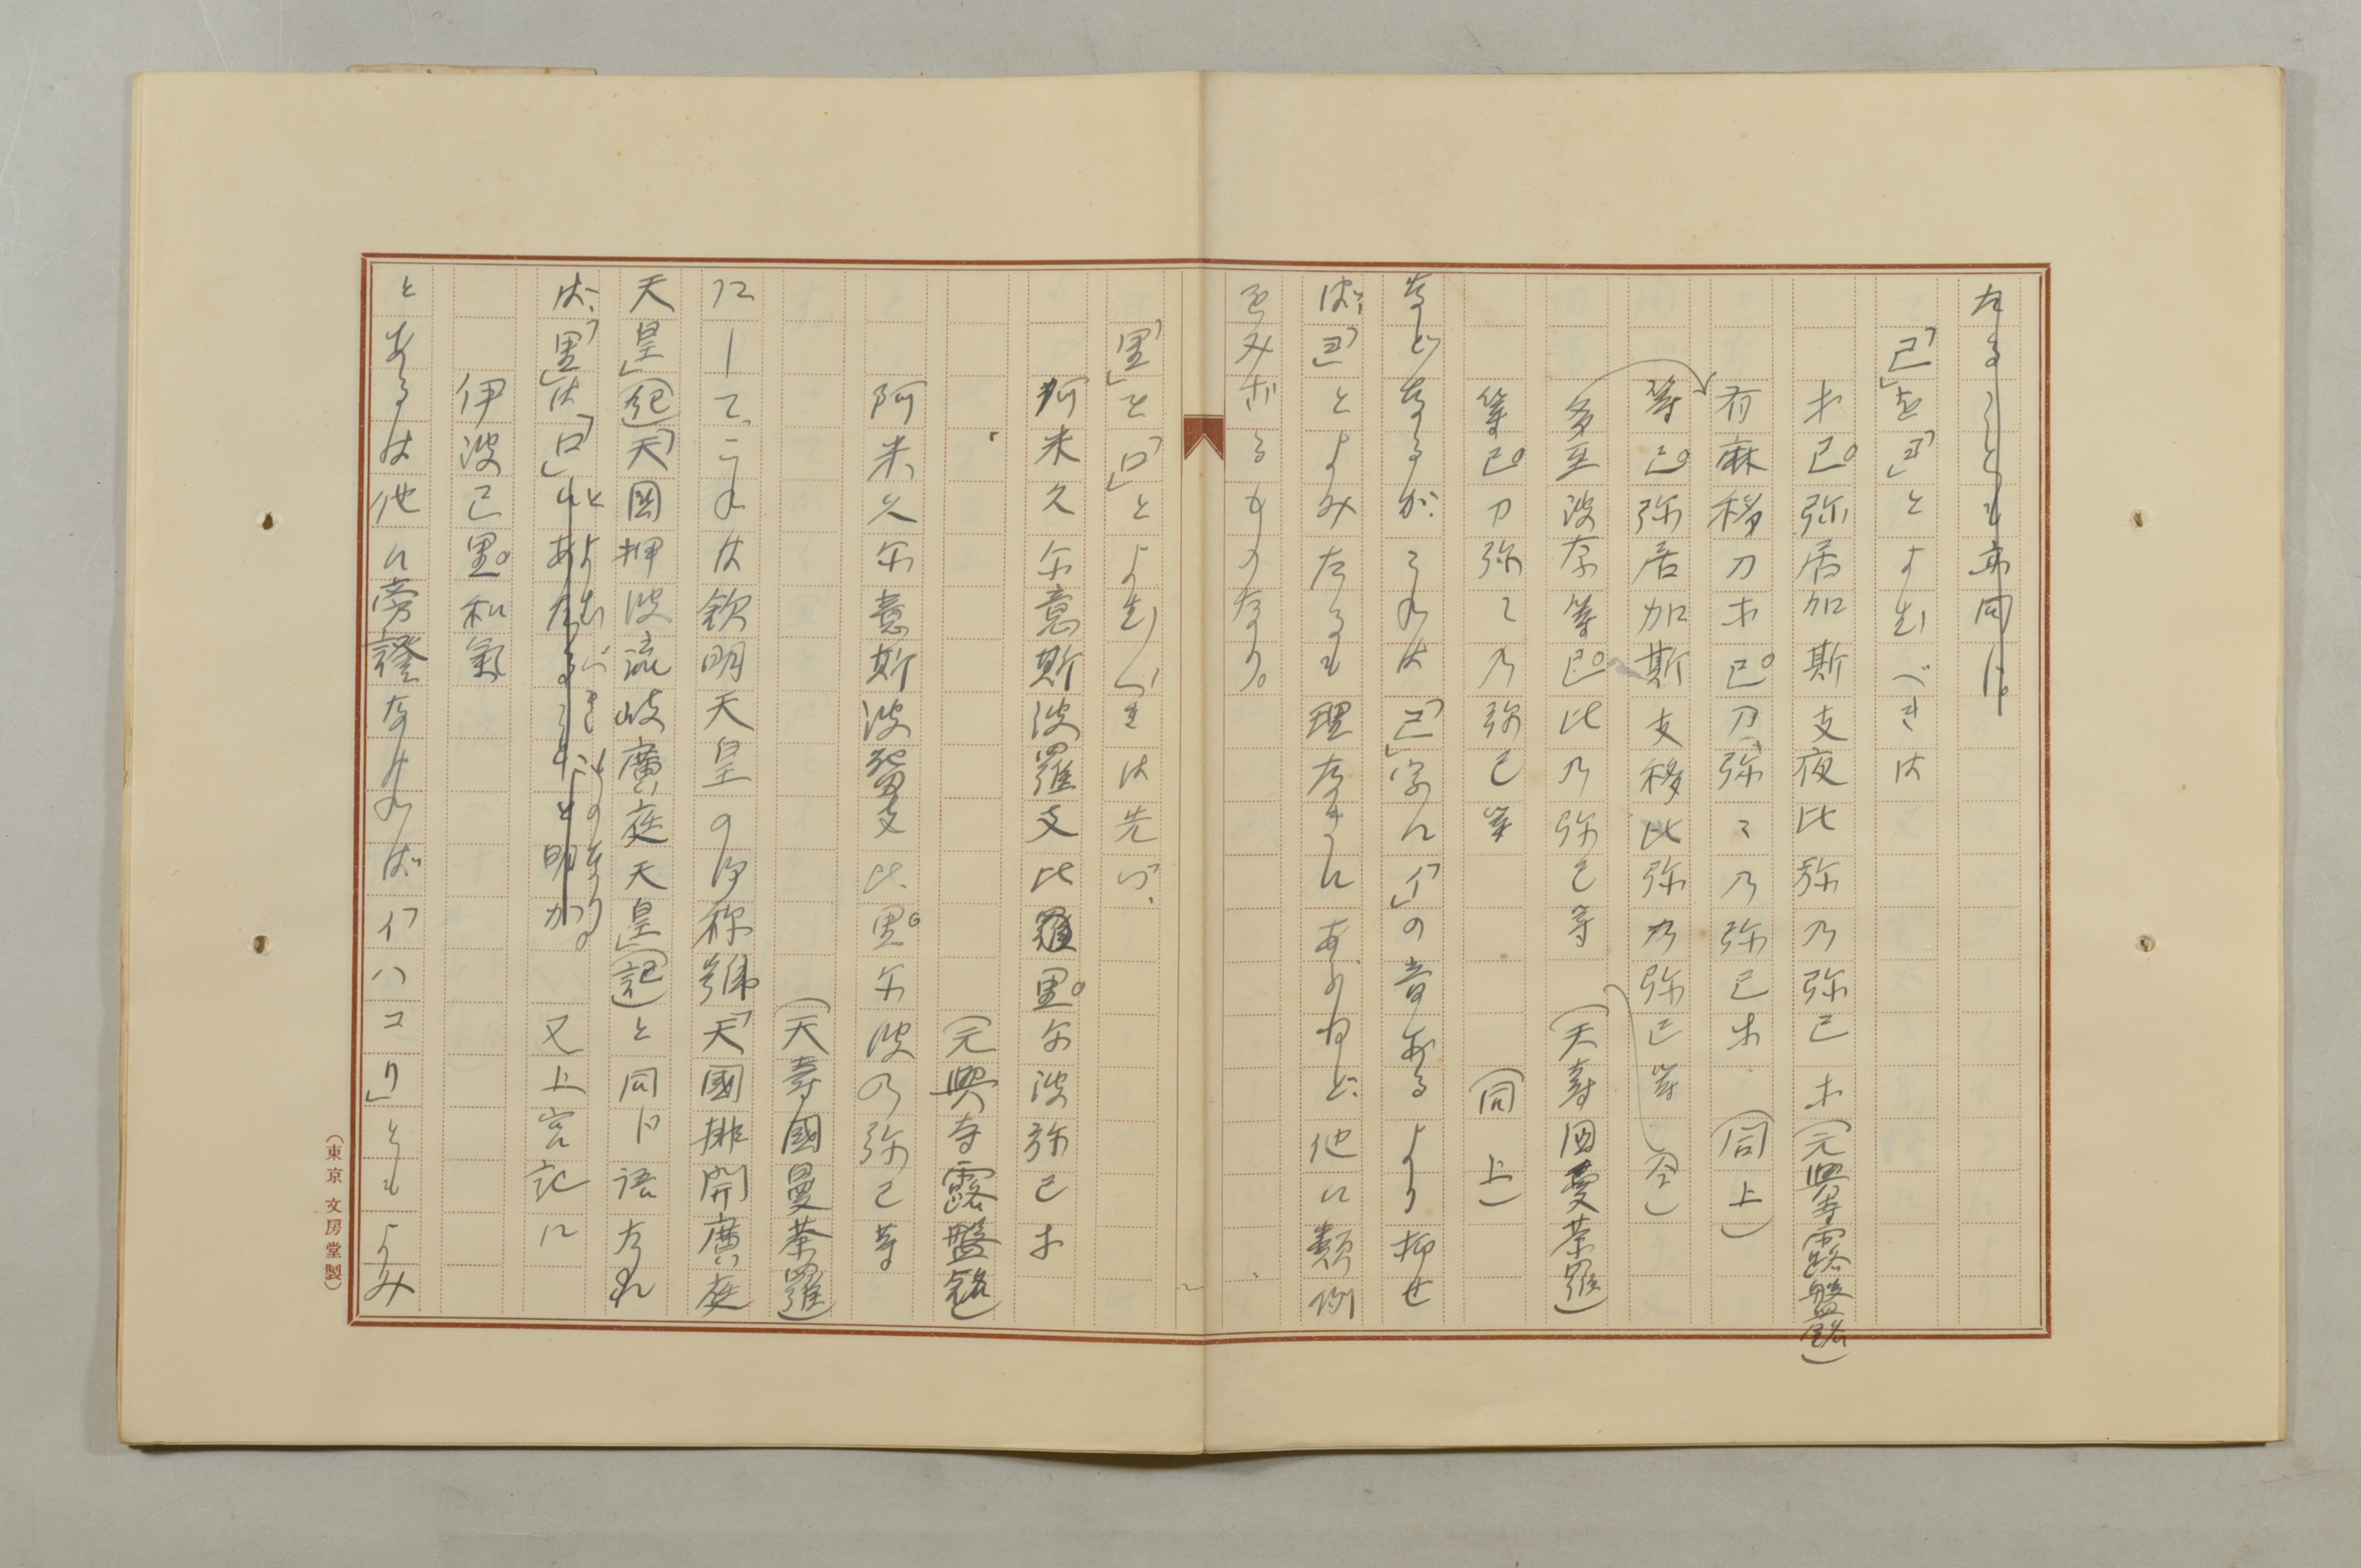 たることも亦同じ。
「已」を「ヨ」とよむべきは
ホ已弥居加斯支夜比弥乃弥己ホ(元興寺露盤銘)
有麻移刀ホ已刀弥々乃弥己ホ(同上)
等已弥居加斯支移比弥乃弥己等(仝)
多至波奈等已比乃弥己等(天寿国曼荼羅)
等已刀弥々乃弥己等(同上)
などなるが、これは「已」字に「イ」の音あるより抑せ
ば、「ヨ」とよみたるも理なきにあらねど、他に類例
をみざるものなり。
「里」を「ロ」とよむべきは先づ、
阿米久尓意斯波羅支比羅里尓波弥己ホ
(元興寺露盤銘)
阿米久尓意斯波留支比里尓波乃弥己等
(天壽國曼荼羅)
にして、これは欽明天皇の御称號「天國排開廣庭
天皇」(紀)「天国押波流岐廣庭天皇」(記)と同じ語なれ
ば、「里」は「ロ」とよむべきものなり。又上宮記に
伊波己里和氣
とあるは他に旁證なければ「イハコリ」ともよみ
(東京 文房堂製)